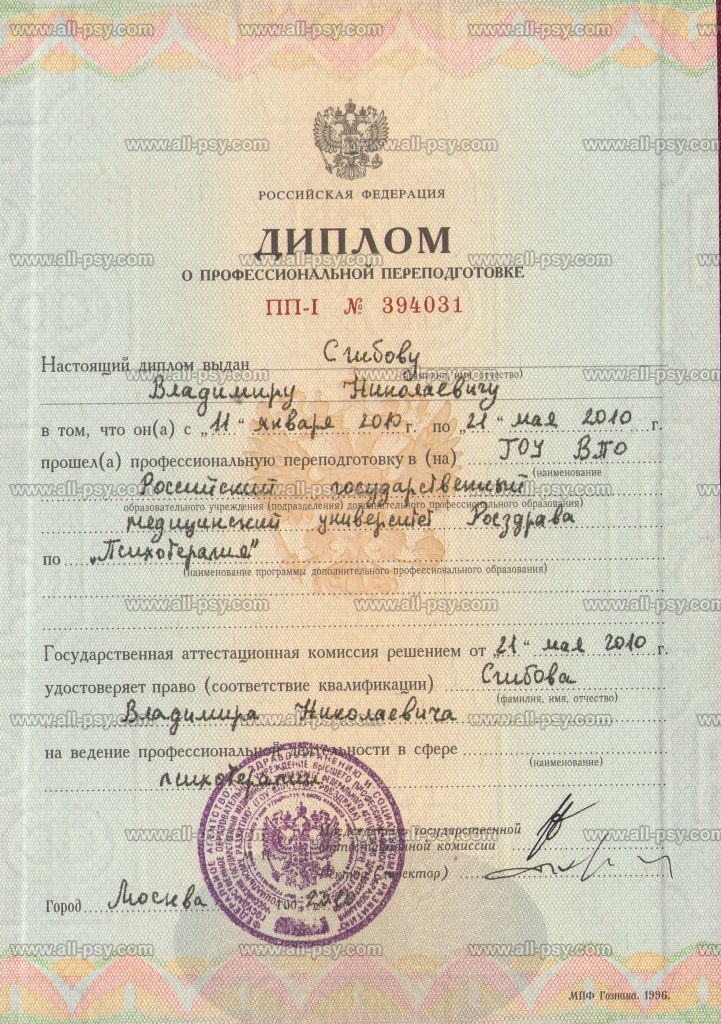 РОССИЙСКАЯ ФЕДЕРАЦИЯ
ДИПЛОМ
О ПРОФЕССИОНАЛЬНОЙ ПЕРЕПОДГОТОВКЕ
ПП-I № 394031
Настоящий диплом выдан Сгибову
(фамилия, имя, отчество)
Владимиру Николаевичу
в том, что он(а) с „11“ января 2010 г. по „21“ мая 2010 г.
прошел(а) профессиональную переподготовку в (на) ГОУ ВПО
(наименование
Российский государственный
образовательного учреждения (подразделения) дополнительного профессионального образования)
медицинский университет Росздрава
по „Психотерапия“
(наименование программы дополнительного профессионального образования)
Государственная аттестационная комиссия решением от „21“ мая 2010 г.
удостоверяет право (соответствие квалификации) Сгибова
(фамилия, имя, отчество)
Владимира Николаевича
на ведение профессиональной деятельности в сфере
(наименование)
психотерапии
Председатель государственной
аттестационной комиссии
Ректор (директор)
Город Москва год 2010
МПФ Гознака. 1996.
www.all-psy.com